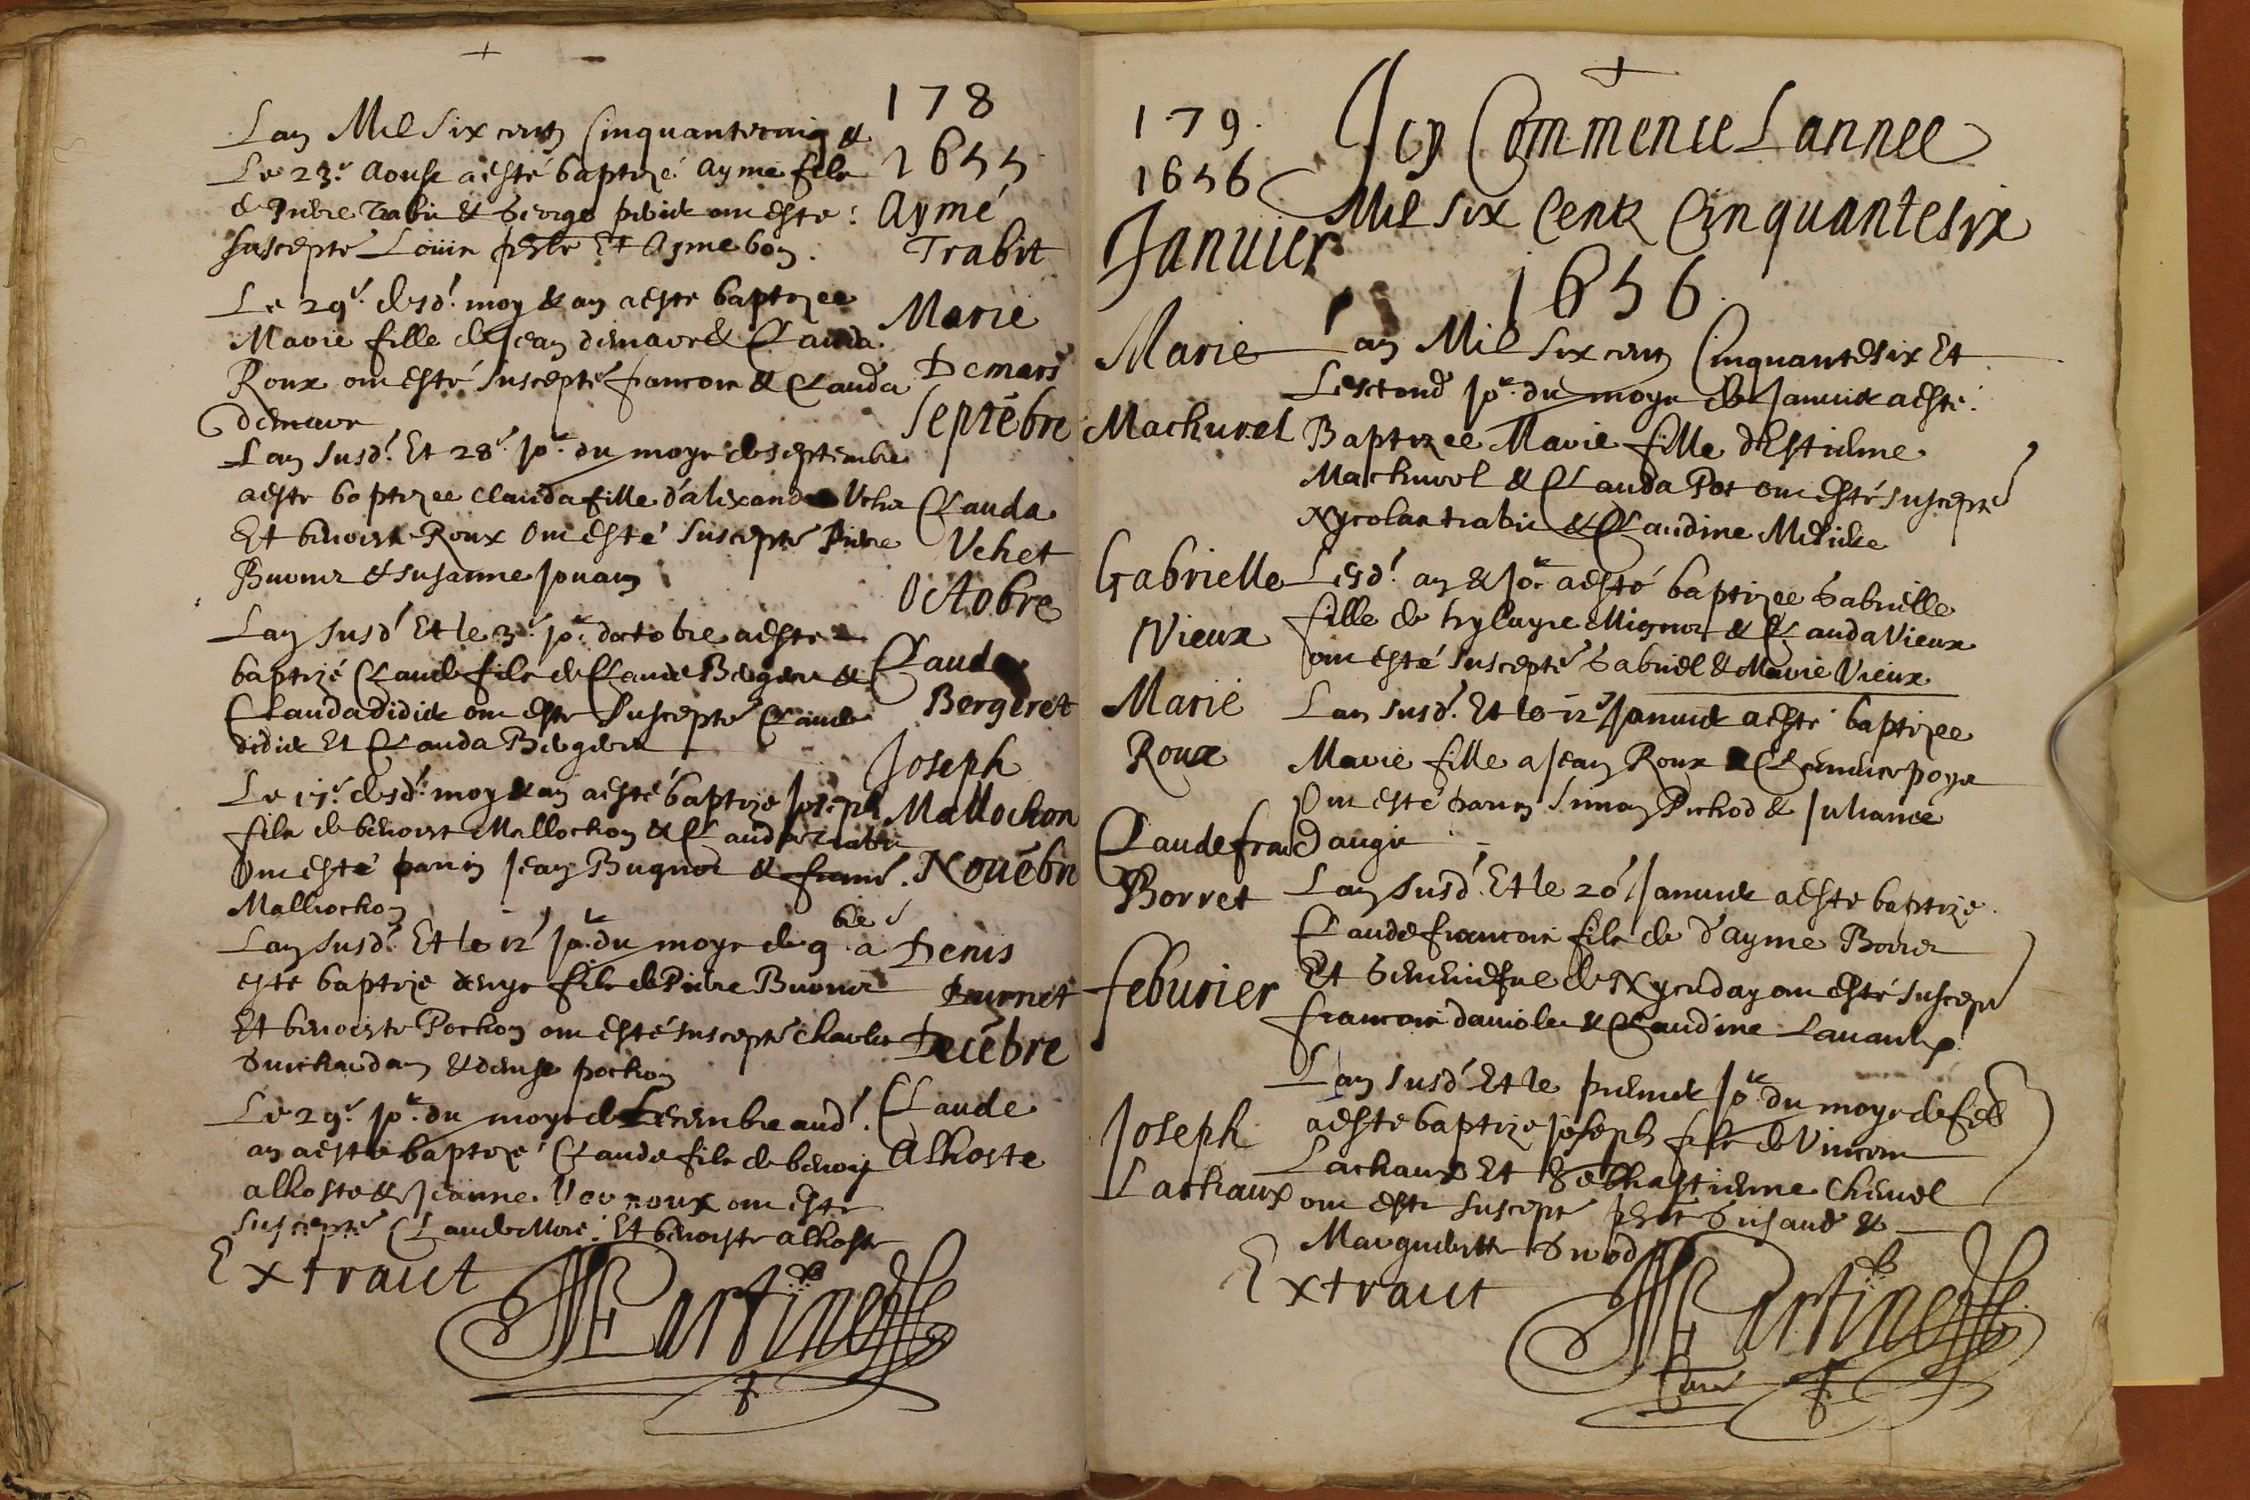 178
1655
Lan Mil six cents Cinquantecinq et
Le 23e Aoust a esté baptizé Ayme filz
de Pierre Trabit et George
suscepté Louis Et Ayme bon
Aymé
Trabit
Le 29e desd. moy et an a este baptizee
Marie fille de Jean demare et Clauda
Roux ont esté suscepté francois et Clauda
demare
Marie
Demare
Septébre
Lan susd. Et 28e jor du moys de septembre
a este baptizee Clauda fille d'alixandre Vehet
Et benoiste Roux Ont esté susceptè Pierre
Buornet et susanne
Clauda
Vehet
Octobre
Lan susd Et le 3e jor doctobre a este
baptizé Claude filz de Claude Bergeret et
Clauda didier ont este susceptè Claude
didier Et Clauda Bergeret
Claude
Bergeret
Le desd. moy et an a esté baptize Joseph
filz de benoist Mallochon et Clauda Trabit
Ont esté parin Jean Bugnot et
Mallochon
Joseph
Mallochon
Nouébre
Lan susd. Et le 12e jor du moys de 9bre a
esté baptize denys filz de Pierre Buornet
Et benoiste Pochon ont esté susceptè charles
et denise pochon
Denis
Decébre
Le 29e jor du moys de Decembre aud.
an a este baptizé Claude filz de benoist
alhoste et Jeanne Vernoux ont este
susceptè Claude More Et benoiste alhoste
Claude
Alhoste
Extraict
Martinet
179
1656
Janvier
Icy Commence Lannee
Mil six Centz Cinquantesix
1656
Marie
Machurel
Lan Mil six cents Cinquantesix Et
Lesecond jor du moys de Januier a esté
Baptizee Marie fille d'Estienne
Machurel et Clauda Pot ont esté susceptè
Nycolas trabit et Claudine
Gabrielle
Vieux
Lesd. an et jor a esté baptizee Gabrielle
fille de hylayre Mignot et Clauda Vieux
ont esté susceptè Gabriel et Marie Vieux
Marie
Roux
Lan susd. Et le 12e Januier a esté baptizee
Marie fille a Jean Roux et
Ont esté parin Simon Pichod et Julianee
daugie
Claudefran
Borret
Lan susd. Et le 20e Januier a este baptize
Claudefrancois filz de d'ayme Borret
Et Genneuiefue de ont esté suscept
francois dauiolet et Claudine
feburier
Lan susd Et le premier jor du moys de feb
a este baptize Joseph filz de Vincent
Lachaux Et Sebhastienne Cheuel
ont este suscept et
Margueritte
Joseph
Lachaux
Extraict
Martinet
Curé